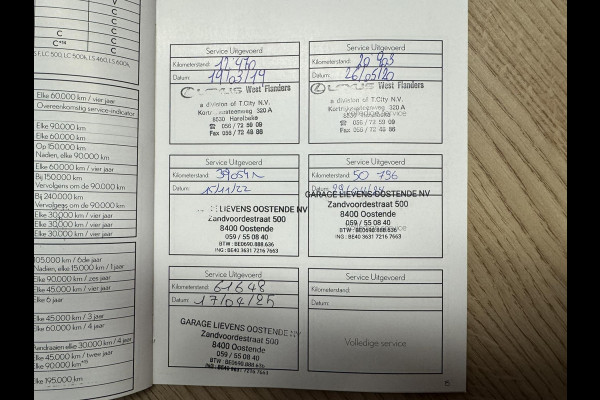 C
C
C
C*⁽⁴⁾
LC 500, LC 500h, LS 460, LS 600h,
Elke 60.000 km / vier jaar
Overeenkomstig service-indicator
Elke 90.000 km
Elke 60.000 km
Op 150.000 km
Nadien, elke 90.000 km
Elke 60.000 km / vier jaar
Bij 150.000 km
Vervolgens om de 90.000 km
Bij 240.000 km
Vervolgens om de 90.000 km
Elke 30.000 km / vier jaar
Elke 30.000 km / vier jaar
Elke 30.000 km / vier jaar
105.000 km / 6de jaar
Nadien, elke 15.000 km / 1 jaar
Elke 90.000 km / zes jaar
Elke 45.000 km / vier jaar
Elke 6 jaar
Elke 45.000 km / 3 jaar
Elke 60.000 km / 4 jaar
aandraaien elke 30.000 km / 4 jaar
Elke 45.000 km / twee jaar
Elke 90.000 km
Elke 195.000 km
Service Uitgevoerd
Kilometerstand: 12 470
Datum: 19/03/19
LEXUS West Flanders
a division of T.City N.V.
320 A
8530 Harelbeke
☎ 056 / 72 59 09
Fax 056 / 72 48 88
Service Uitgevoerd
Kilometerstand: 20 903
Datum: 26/05/20
LEXUS West Flanders
a division of T.City N.V.
320 A
8530 Harelbeke
☎ 056 / 72 59 09
Fax 056 / 72 48 88
Service Uitgevoerd
Kilometerstand:
Datum: 15/11/22
LIEVENS OOSTENDE NV
Zandvoordestraat 500
8400 Oostende
059 / 55 08 40
BTW : BE0690.888.636
ING : BE40 3631 7216 7663
Service Uitgevoerd
Kilometerstand: 50 796
Datum:
GARAGE LIEVENS OOSTENDE NV
Zandvoordestraat 500
8400 Oostende
059 / 55 08 40
BTW : BE0690.888.636
ING : BE40 3631 7216 7663
Service Uitgevoerd
Kilometerstand: 61648
Datum: 17/04/25
GARAGE LIEVENS OOSTENDE NV
Zandvoordestraat 500
8400 Oostende
059 / 55 08 40
BTW : BE0690.888.636
ING : BE40 3631 7216 7663
Service Uitgevoerd
Kilometerstand:
Datum:
Volledige service